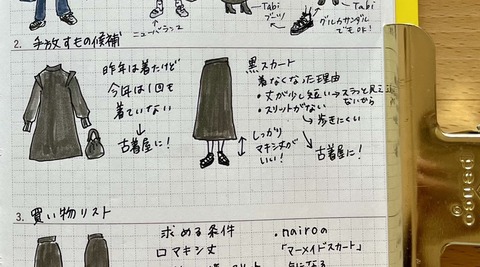 Tabi
ブーツ
ニューバランス
Tabi
グルカサンダル
でもOK!
2. 手放すもの候補
昨年は着たけど
今年は1回も
着ていない
古着屋に!
黒スカート
着なくなった理由
・丈が少し短い→スラっと見え
ないから
・スリットがない
→歩きにくい
古着屋に!
しっかり
マキシ丈が
いい!
3. 買い物リスト
求める条件
□マキシ丈
・nairoの
「マーメイドスカート」
気になる
penco